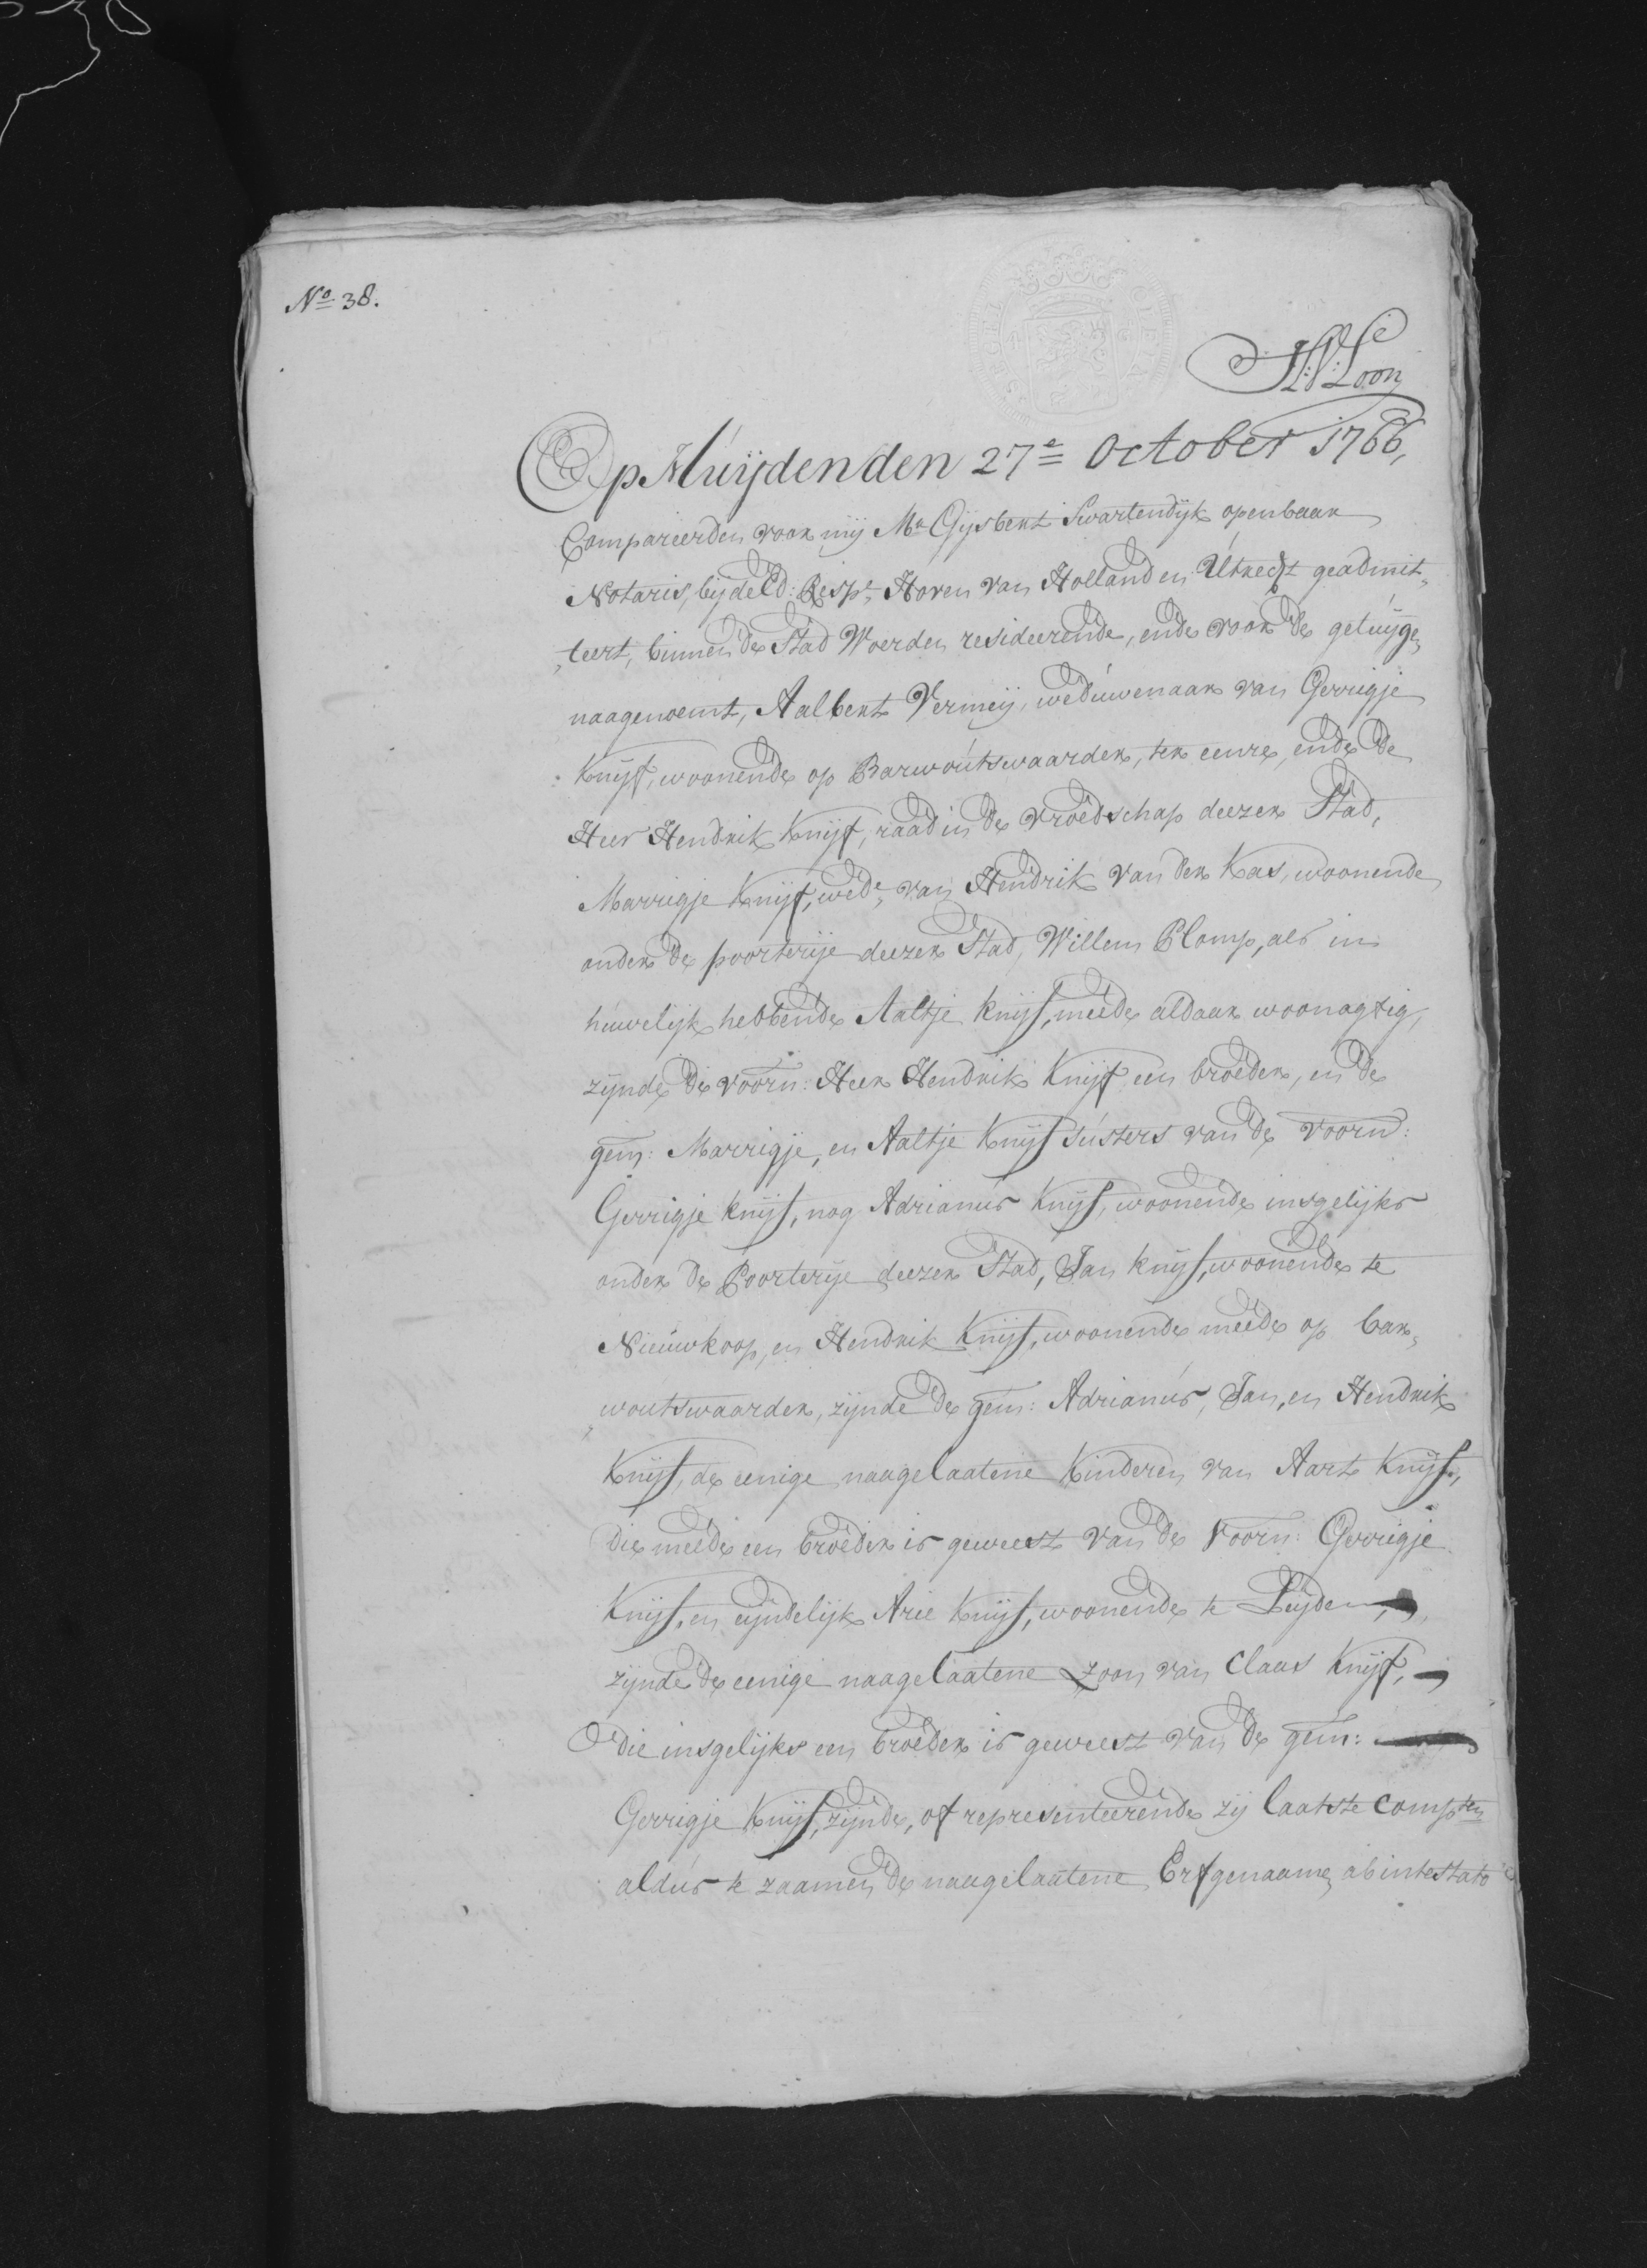 No. 38.
Op Huijden den 27e October 1766,
Compareerden voor mij Mr Gijsbert Swartendijk openbaar
Notaris, bij de Ed: Respe. Hoven van Holland en Utrecht geadmit„
„teert, binnen de Stad Woerden resideerende, ende voor de getuijge„
naagenoemt, Aalbert Vermeij, weduwenaar van Gerrigje
Knijf, woonende op Barwoutswaarder, ter eenre, ende de
Heer Hendrik Knijf, raad in de vroedschap deezer Stad,
Marrigje Knijf, wede. van Hendrik van der Kas, woonende
onder de poorterije deezer Stad, Willem Plomp, als in
huwelijk hebbende Aaltje Knijf, meede aldaar woonagtig,
zijnde de voorn: Heer Hendrik Knijf een broeder, en de
gem: Marrigje, en Aaltje Knijf susters van de voorn:
Gerrigje Knijf, nog Adrianus Knijf, woonende insgelijks
onder de Poorterije deezer Stad, Jan Knijf, woonende te
Nieuwkoop, en Hendrik Knijf, woonende meede op bar„
„woutswaarder, zijnde de gem: Adrianus, Jan, en Hendrik
Knijf, de eenige naagelaatene Kinderen van Aart Knijf,
die meede een broeder is geweest van de voorn: Gerrigje
Knijf, en eijndelijk Arie Knijf, woonende te Leijden,
zijnde de eenige naagelaatene zoon van Claas Knijf,
die insgelijks een broeder is geweest van de gem:
Gerrigje Knijf, zijnde, of representeerende zij laatste compten
aldus te zaamen de naagelaatene Erfgenaame ab intestato